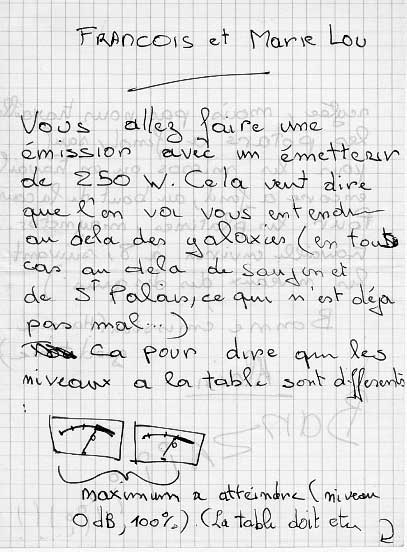 FRANCOIS et Marie Lou
Vous allez faire une
émission avec un émetteur
de 250 W. Cela veut dire
que l'on va vous entendre
au dela des galaxies (en tous
cas au dela de Saujon et
de St Palais, ce qui n'est déja
pas mal...)
Ca pour dire que les
niveaux a la table sont differents
:
maximum a atteindre (niveau
0 dB, 100%). (La table doit etre